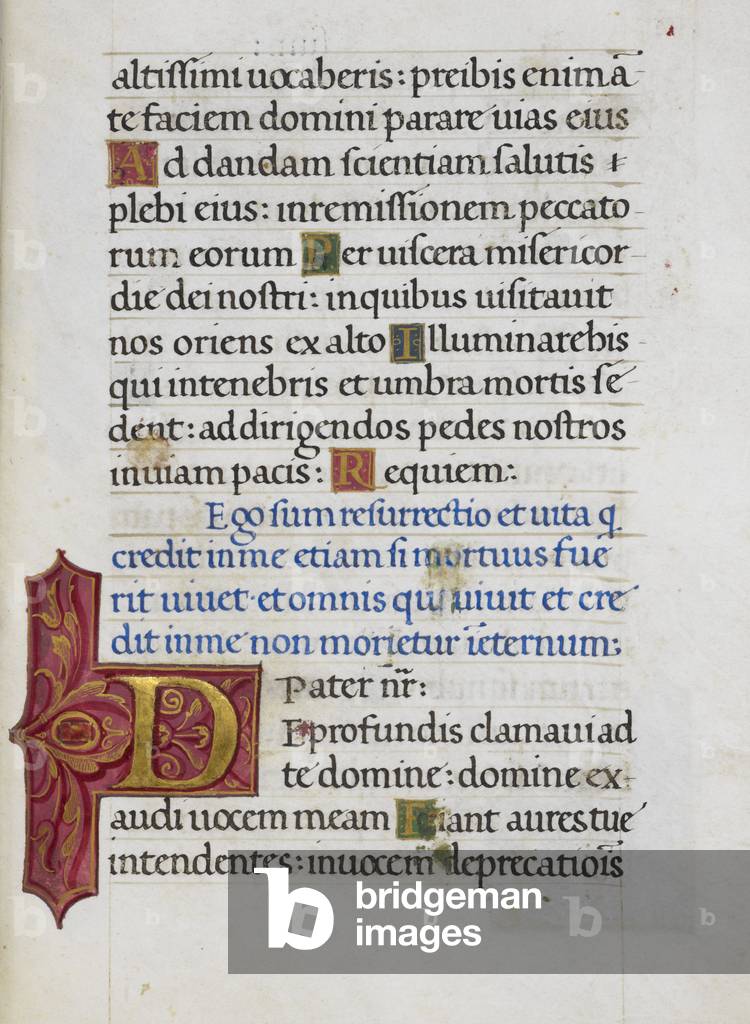 altissimi uocaberis: preibis enim ā
te faciem domini parare uias eius
Ad dandam scientiam salutis
plebi eius: inremissionem peccato
rum eorum Per uiscera misericor
die dei nostri: inquibus uisitauit
nos oriens ex alto Illuminarebis
qui intenebris et umbra mortis se
dent: ad dirigendos pedes nostros
inuiam pacis: Requiem:
Ego sum resurrectio et uita q
credit inme etiam si mortuus fue
rit uiuet et omnis qui uiuit et cre
dit inme non morietur īeternum:
Pater nr̄:
DE profundis clamaui ad
te domine: domine ex
audi uocem meam Fiant aures tue
intendentes: inuocem deprecatiois
bridgeman
images